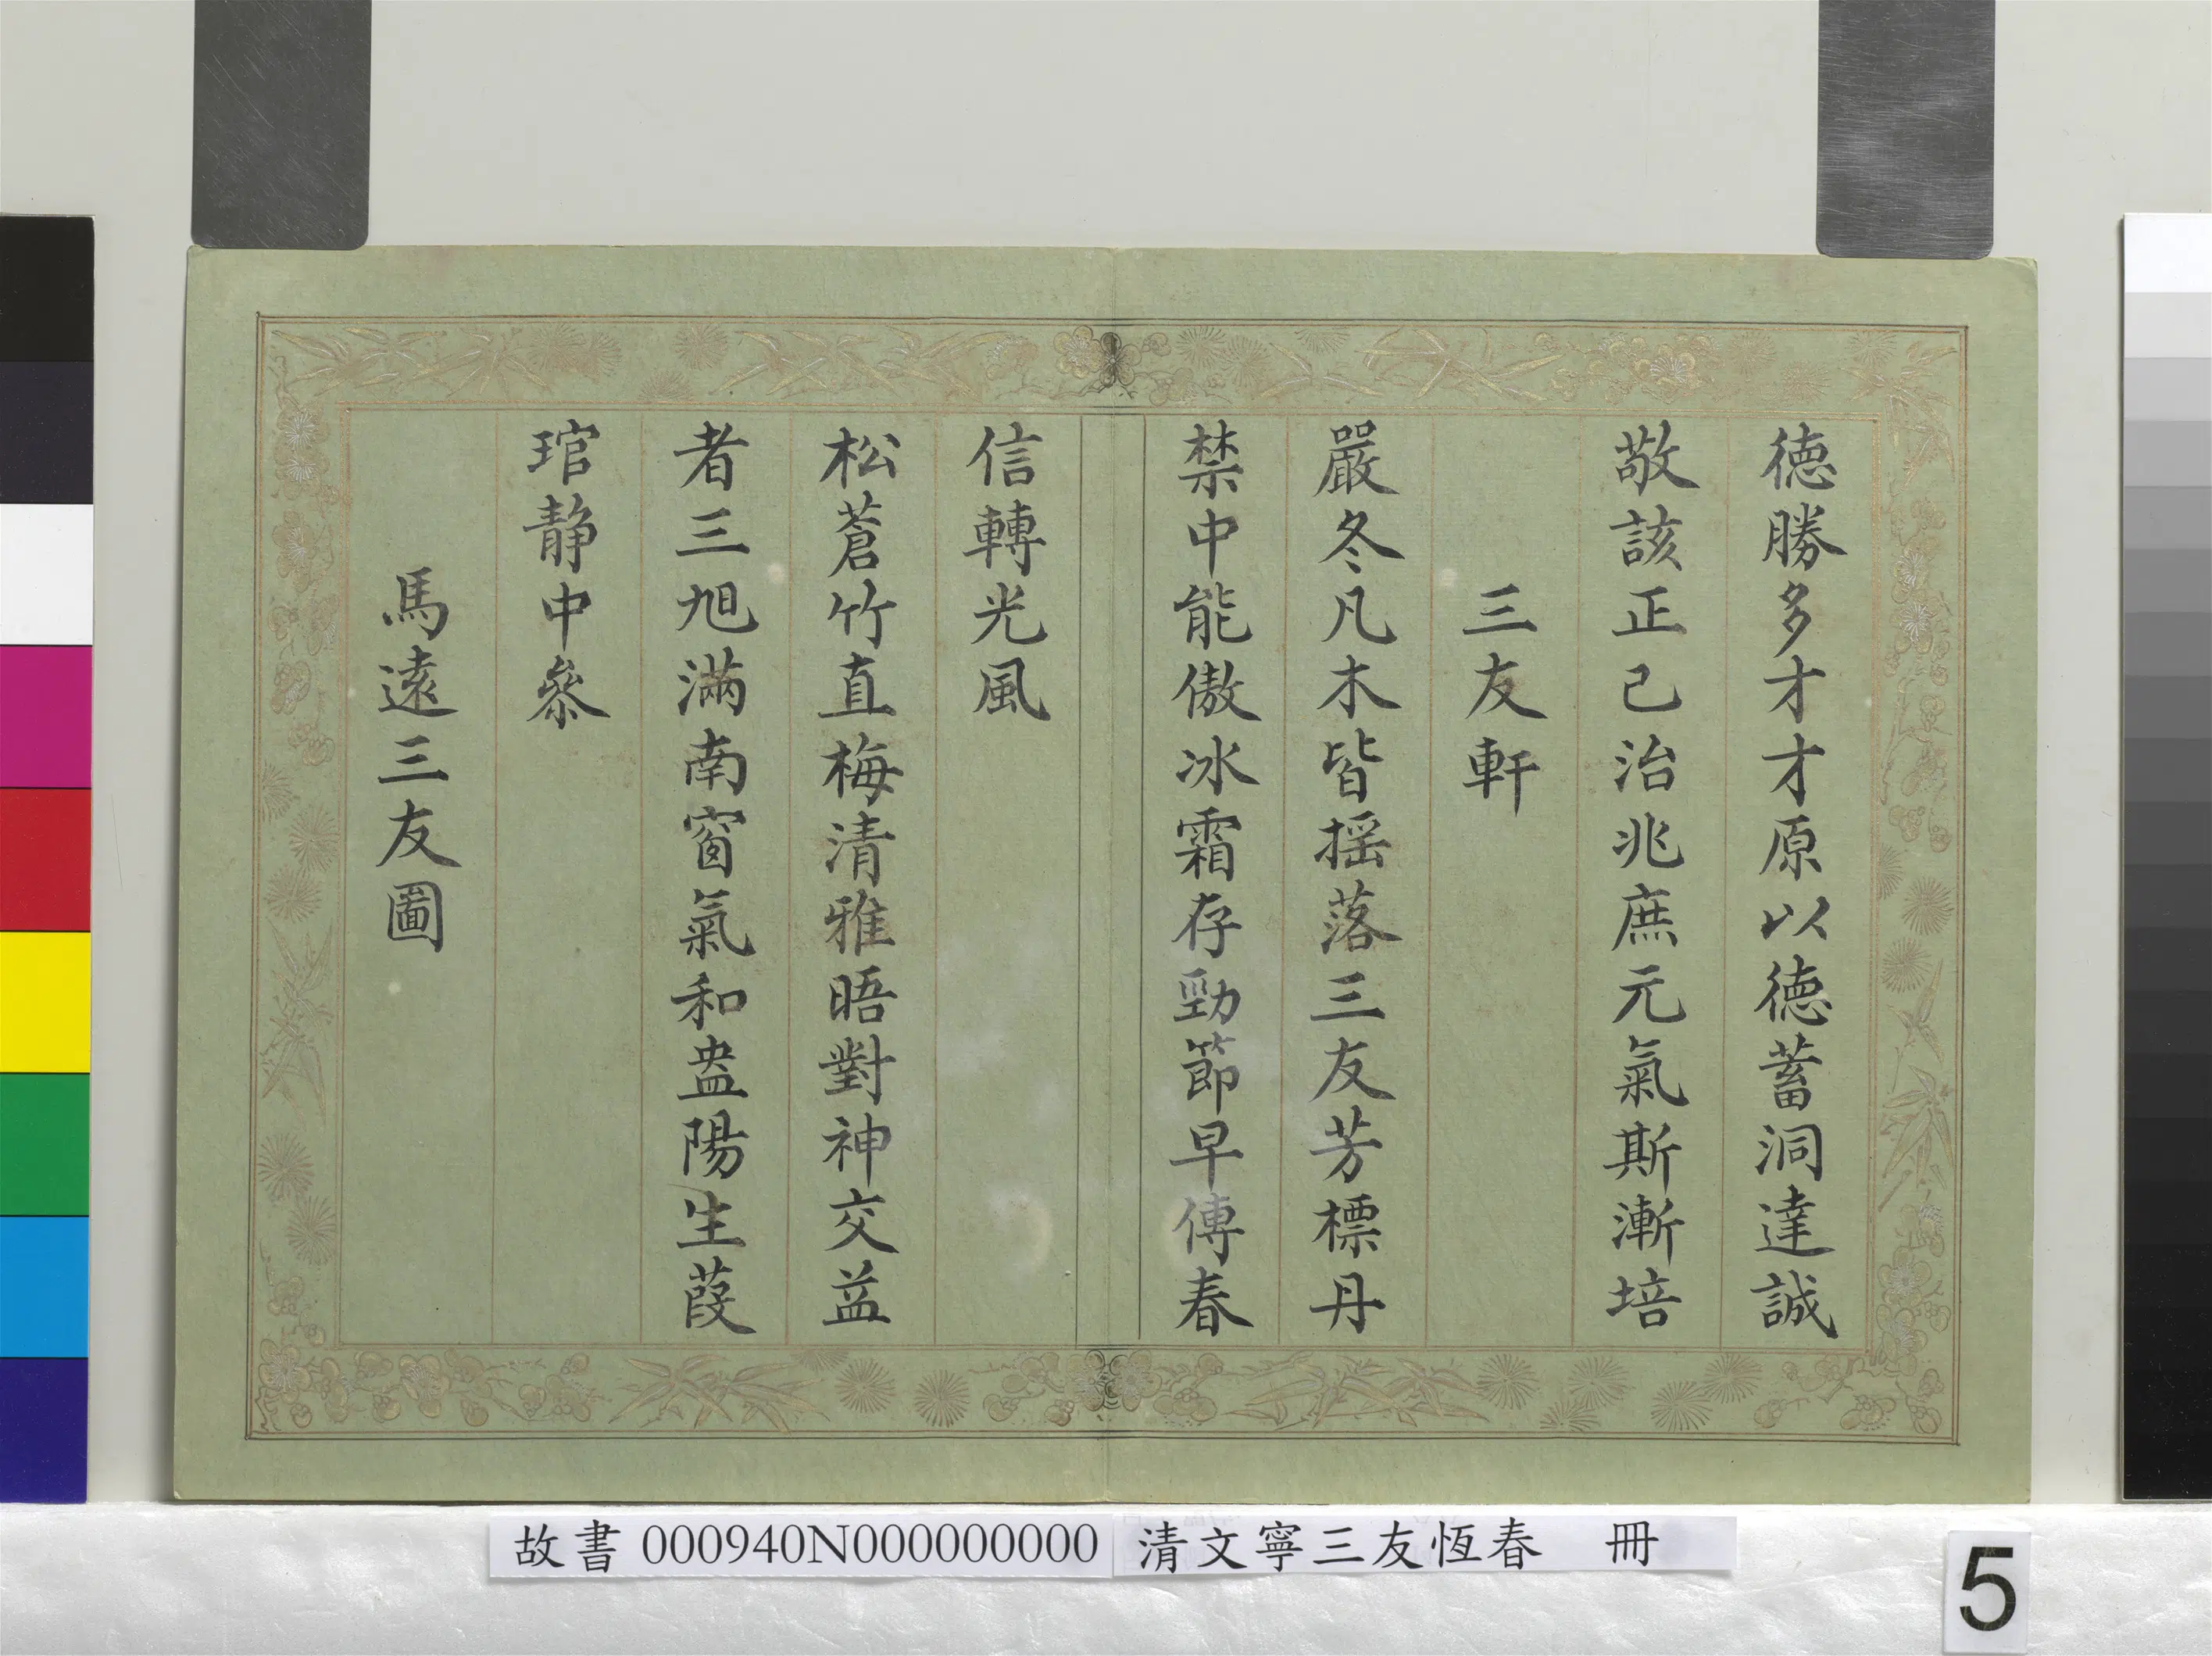 德勝多才才原以德蓄洞達誠
敬該正己治兆庶元氣斯漸培
三友軒
嚴冬凡木皆搖落三友芳標丹
禁中能傲冰霜存勁節早傳春
信轉光風
松蒼竹直梅清雅晤對神交益
者三旭滿南窗氣和盎陽生葭
琯静中參
馬遠三友圖
故書 000940N000000000 清文寧三友恆春 冊
5